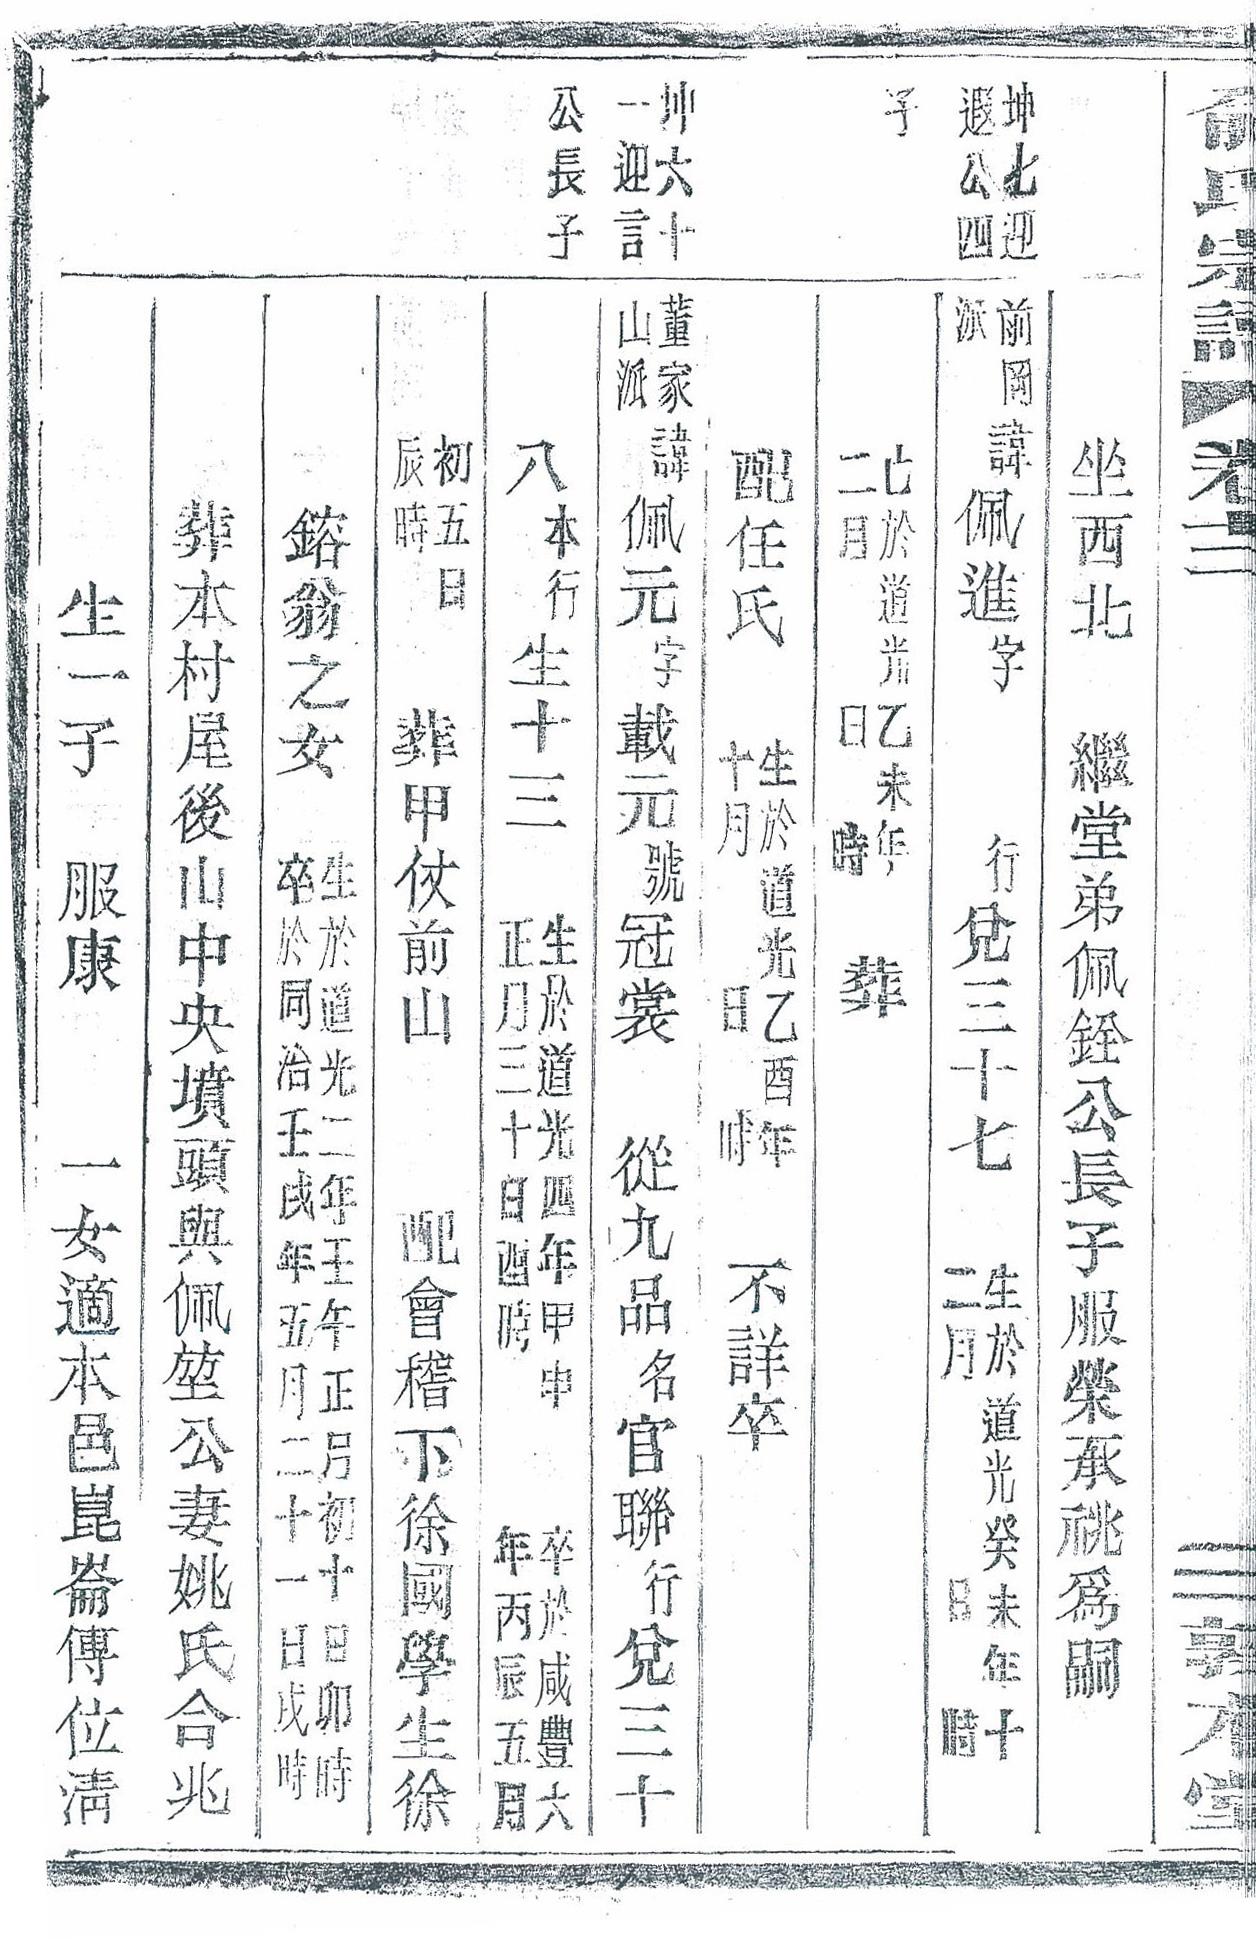 俞氏宗譜 卷三 三 敦本堂
坐西北 繼堂弟佩銓公長子服榮承祧爲嗣
坤七迎
遐公四
子
前岡
派
諱佩進字 行兌三十七 生於道光癸未年十
二月 日 時
亡於道光乙未年
二月 日 時 葬
配任氏 生於道光乙酉年
十月 日 時 不詳卒
坤六十
一迎言
公長子
董家
山派
諱佩元字載元號冠裳 從九品名官聯行兌三十
八本行生十三 生於道光四年甲申
正月三十日酉時 卒於咸豐六
年丙辰五月
初五日
辰時 葬甲仗前山 配會稽下徐國學生徐
鎔翁之女 生於道光二年壬午正月初十日卯時
卒於同治壬戌年五月二十一日戌時
葬本村屋後山中央墳頭與佩堃公妻姚氏合兆
生一子 服康 一女適本邑崑崙傅位清